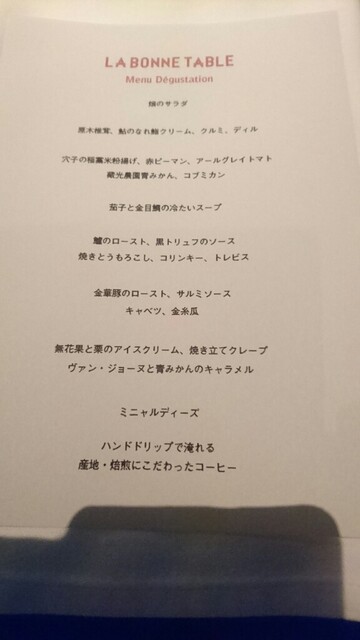 LA BONNE TABLE
Menu Dégustation
のサラダ
原木椎茸、鮎のなれ鮨クリーム、クルミ、ディル
穴子の稲藁米粉揚げ、赤ピーマン、アールグレイトマト
蔵光農園青みかん、コブミカン
茄子と金目鯛の冷たいスープ
鱸のロースト、黒トリュフのソース
焼きとうもろこし、コリンキー、トレビス
金華豚のロースト、サルミソース
キャベツ、金糸瓜
無花果と栗のアイスクリーム、焼き立てクレープ
ヴァン・ジョーヌと青みかんのキャラメル
ミニャルディーズ
ハンドドリップで淹れる
産地・焙煎にこだわったコーヒー